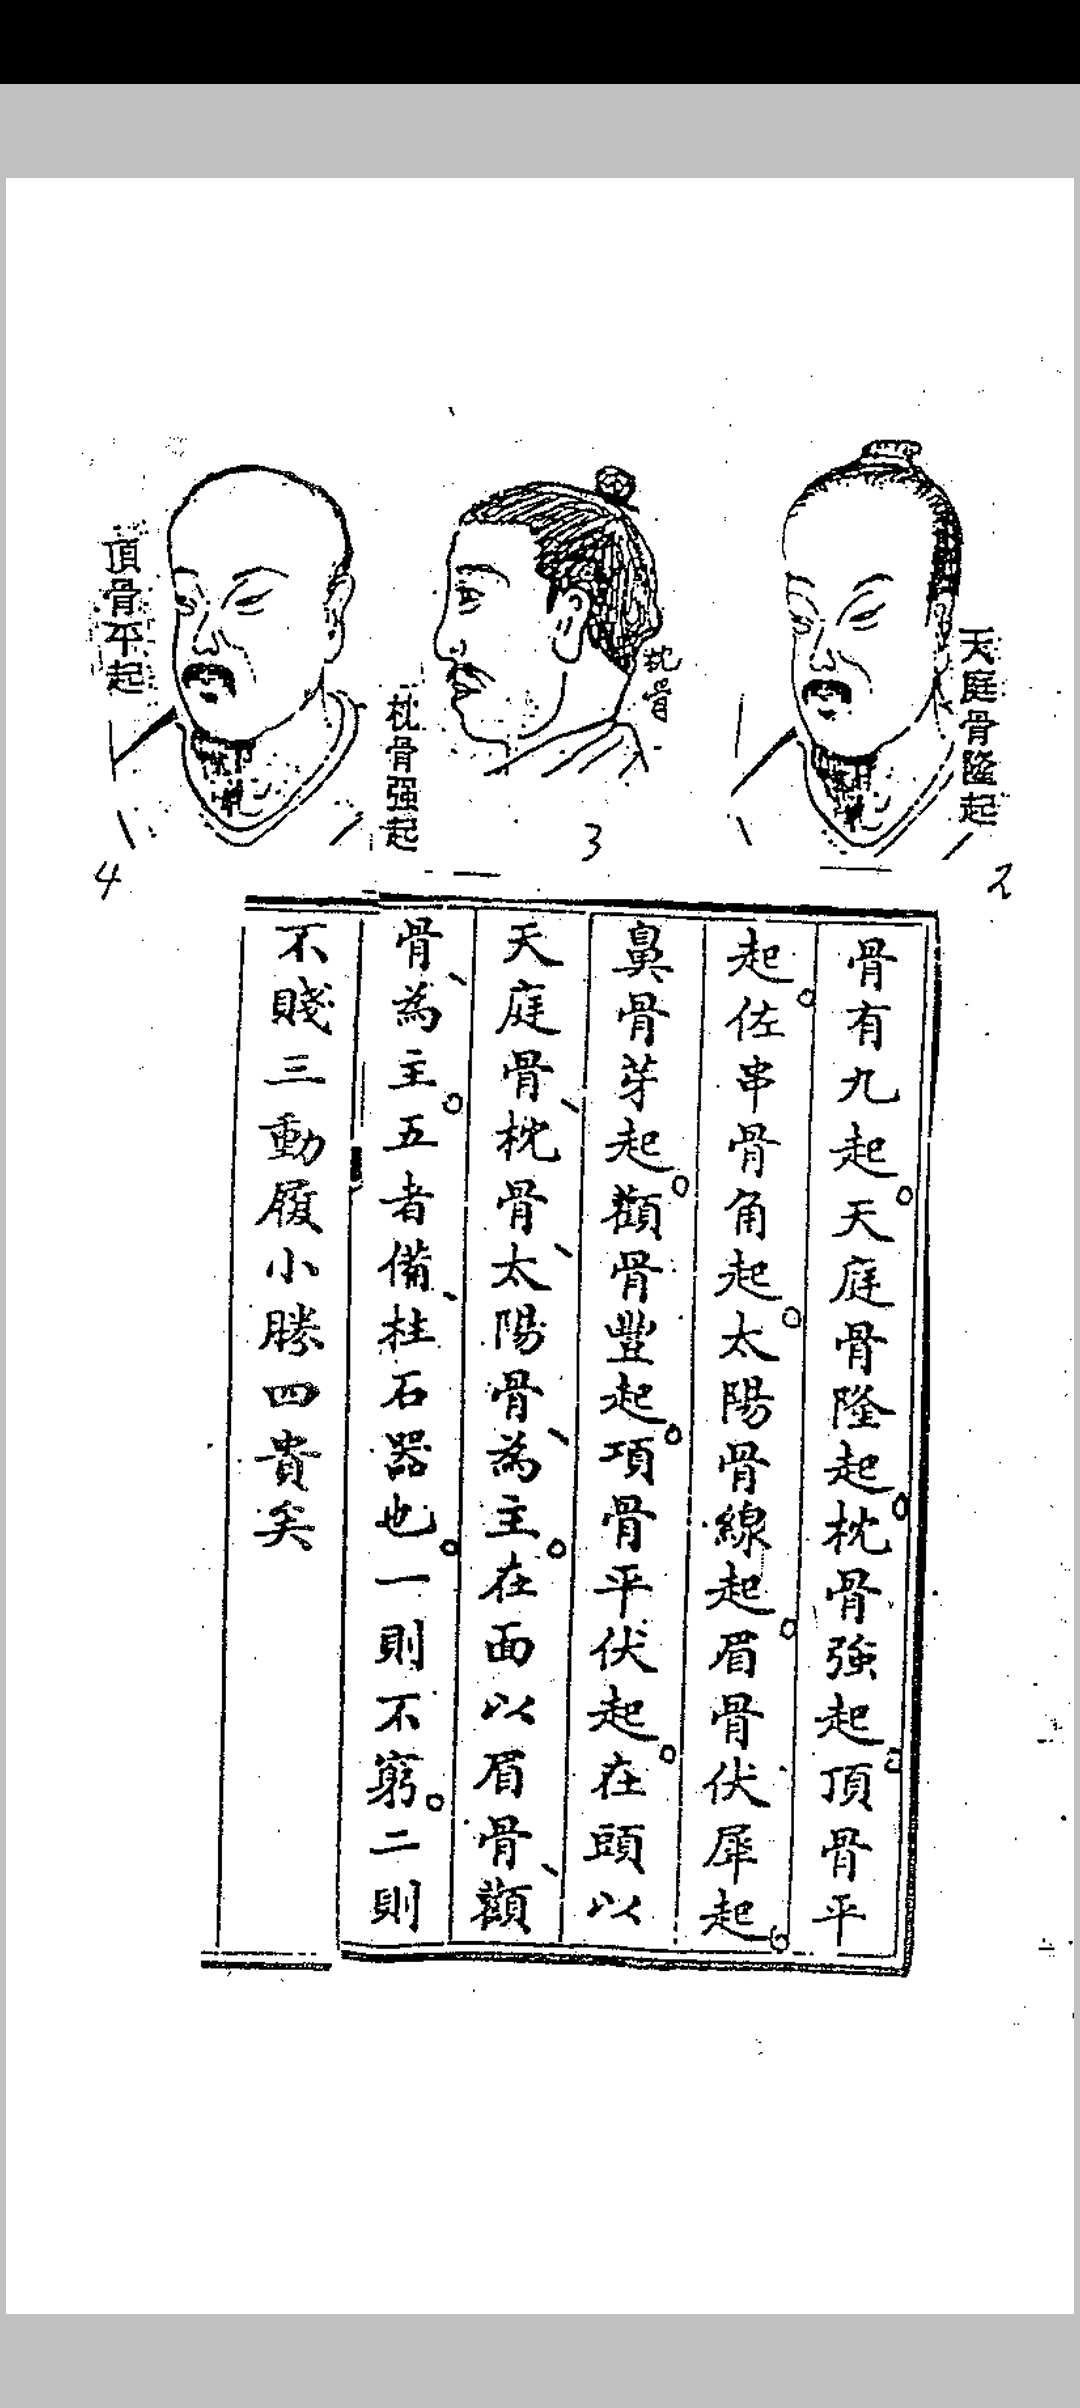 天庭骨隆起
2
枕骨
3
枕骨强起
頂骨平起
4
骨有九起。天庭骨隆起。枕骨強起。頂骨平
起。佐串骨角起。太陽骨線起。眉骨伏犀起。
鼻骨芽起。顴骨豐起。項骨平伏起。在頭以
天庭骨、枕骨、太陽骨、為主。在面以眉骨、顴
骨、為主。五者備、柱石器也。一則不窮。二則
不賤三動履小勝四貴矣